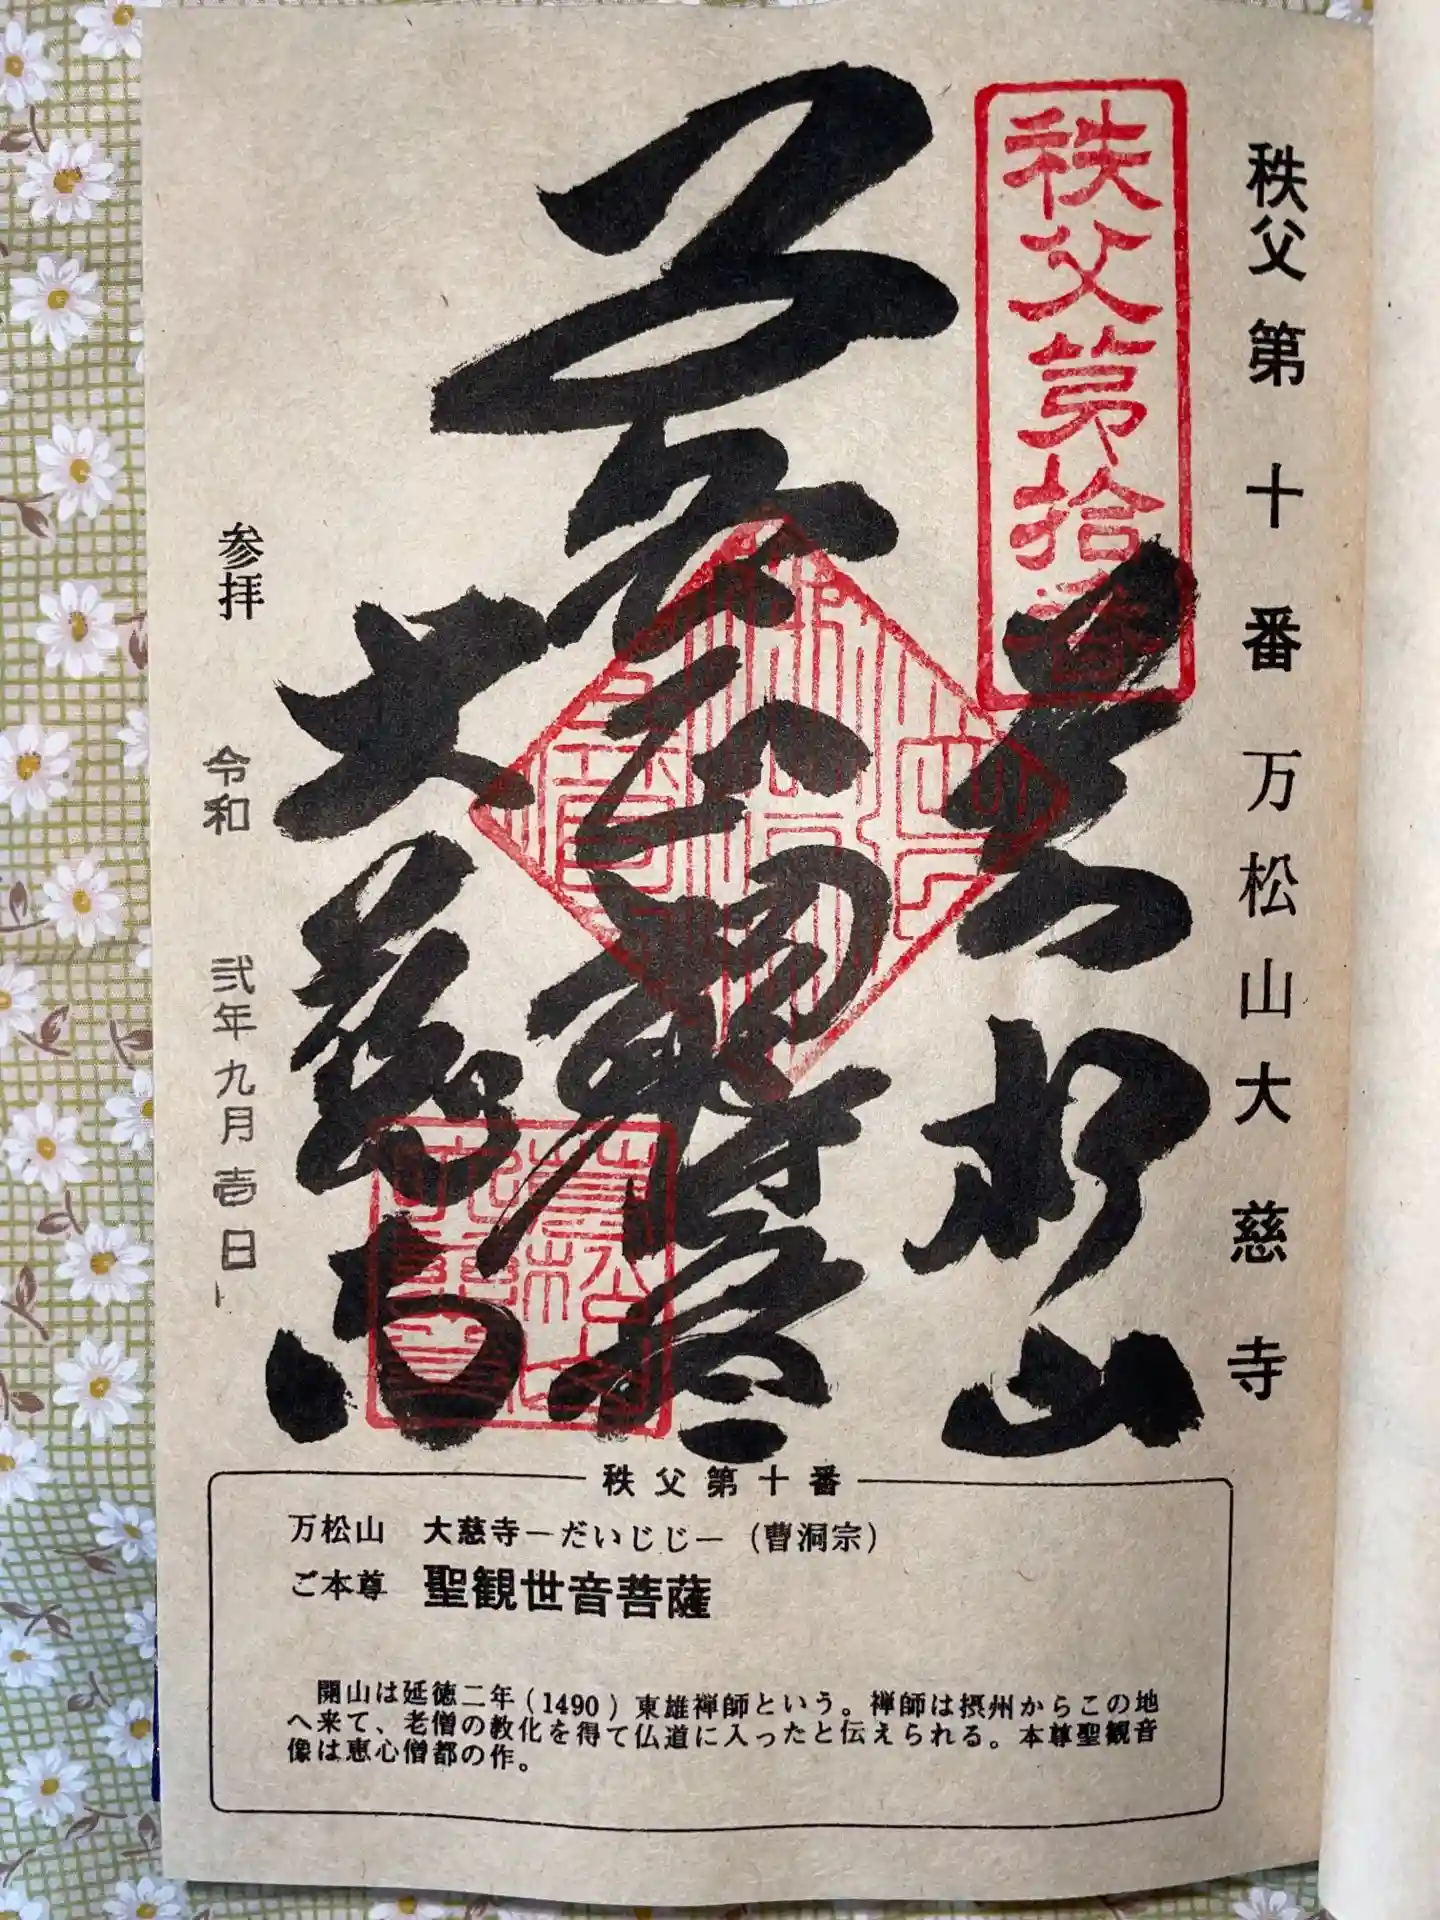 秩父第十番 万松山大慈寺
秩父第拾番
万松山
大慈寺
参拝 令和 弐年九月壱日
秩父第十番
万松山 大慈寺―だいじじ―（曹洞宗）
ご本尊 聖観世音菩薩
開山は延徳二年（1490）東雄禅師という。禅師は摂州からこの地
へ来て、老僧の教化を得て仏道に入ったと伝えられる。本尊聖観音
像は恵心僧都の作。